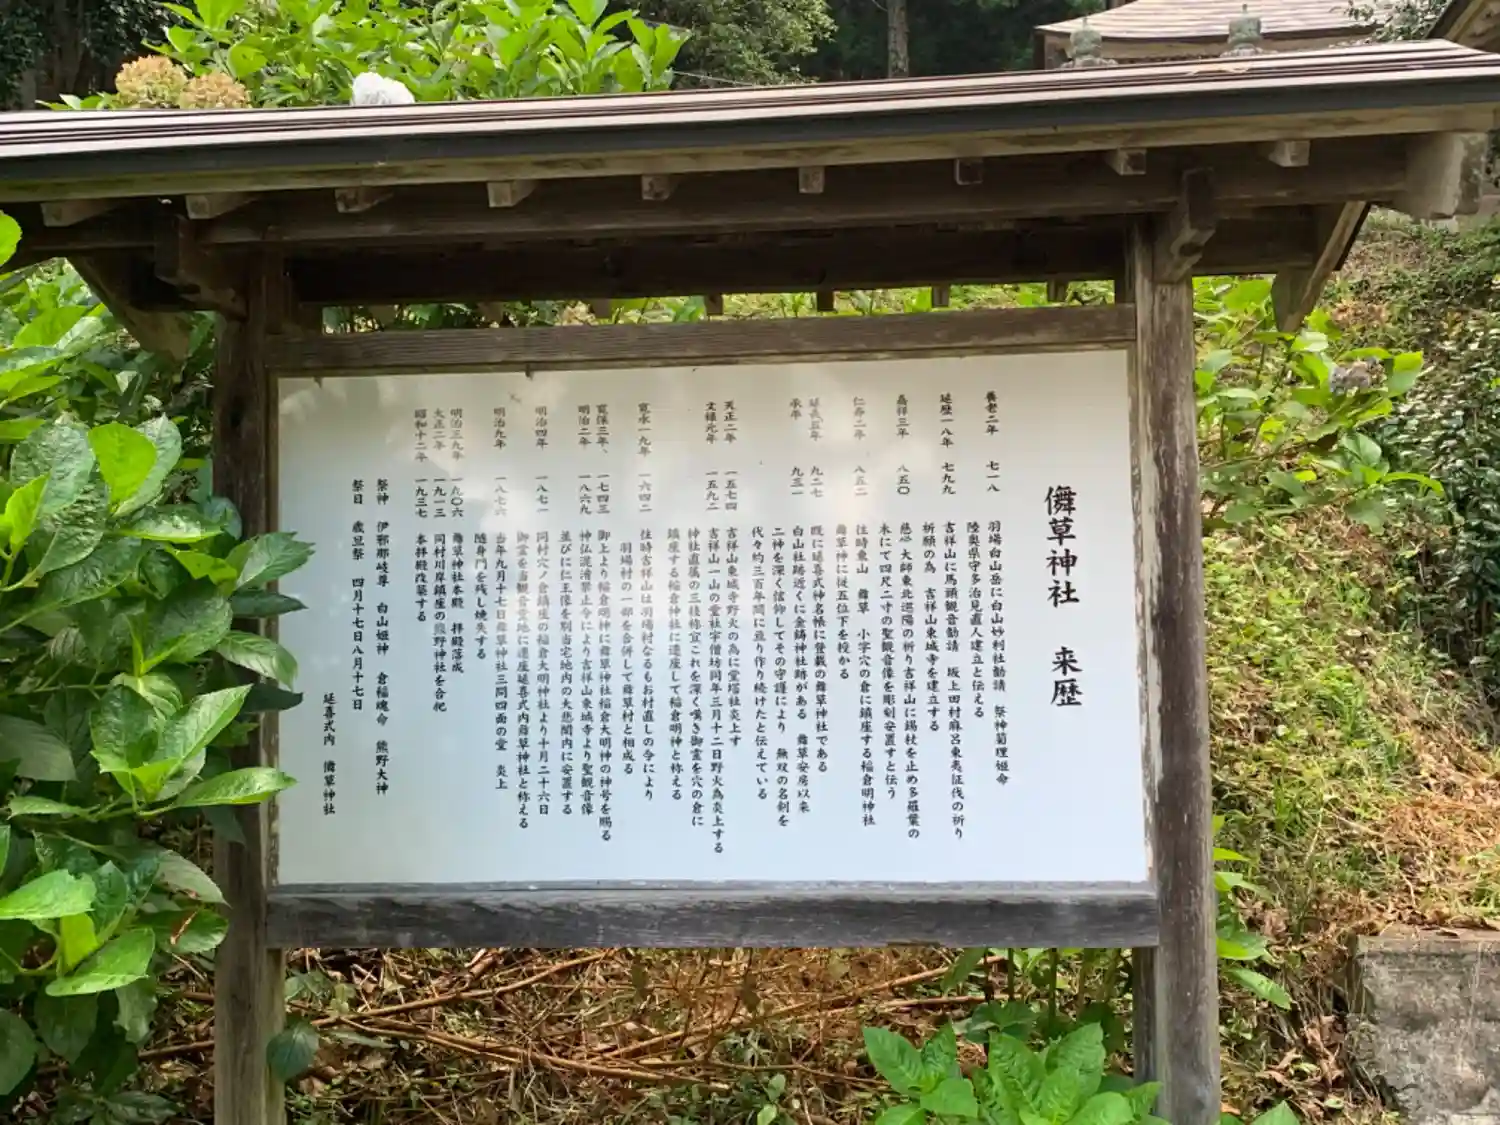 儛草神社 来歴
養老二年 七一八 羽場白山岳に白山妙利社勧請 祭神菊理姫命
陸奥県守多治見直人建立と伝える
延歴一八年 七九九 吉祥山に馬頭観音勧請 坂上田村麻呂東夷征伐の祈り
祈願の為 吉祥山東城寺を建立する
嘉祥三年 八五〇 慈心大師東北巡陽の祈り吉祥山に錫杖を止め多羅葉の
木にて四尺二寸の聖観音像を彫刻安置すと伝う
仁寿二年 八五二 往時東山 舞草 小字穴の倉に鎮座する稲倉明神社
舞草神に従五位下を授かる
延長五年 九二七 既に延喜式神名帳に登載の舞草神社である
承平 九三一 白山社路近くに金鋳神社跡がある 舞草安房以来
二神を深く信仰してその守護により 無双の名剣を
代々約三百年間に亘り作り続けたと伝えている
天正二年 一五七四 吉祥山東城寺野火の為に堂塔社炎上す
文禄元年 一五九二 吉祥山一山の堂社宇僧坊同年三月十二日野火為炎上する
神社直属の三技称宜これを深く嘆き御霊を穴の倉に
鎮座する稲倉神社に遷座して稲倉明神と称える
寛永一九年 一六四二 往時吉祥山は羽場村なるもお村直しの令により
羽場村の一部を合併して舞草村と相成る
寛保三年、 一七四三 御上より稲倉明神に舞草神社稲倉大明神の神号を賜る
明治二年 一八六九 神仏混淆禁止令により吉祥山東城寺より聖観音像
並びに仁王像を別当宅地内の大悲閣内に安置する
明治四年 一八七一 同村穴ノ倉鎮座の稲倉大明神社より十月二十六日
御霊を当観音堂地に遷座延喜式内舞草神社と称える
明治九年 一八七六 当年九月十七日舞草神社三間四面の堂 炎上
随身門を残し焼失する
明治三九年 一九〇六 舞草神社本殿 拝殿落成
大正二年 一九一三 同村川岸鎮座の熊野神社を合祀
昭和十二年 一九三七 本拝殿改築する
祭神 伊邪那岐尊 白山姫神 倉稲魂命 熊野大神
祭日 歳旦祭 四月十七日八月十七日
延喜式内 儛草神社